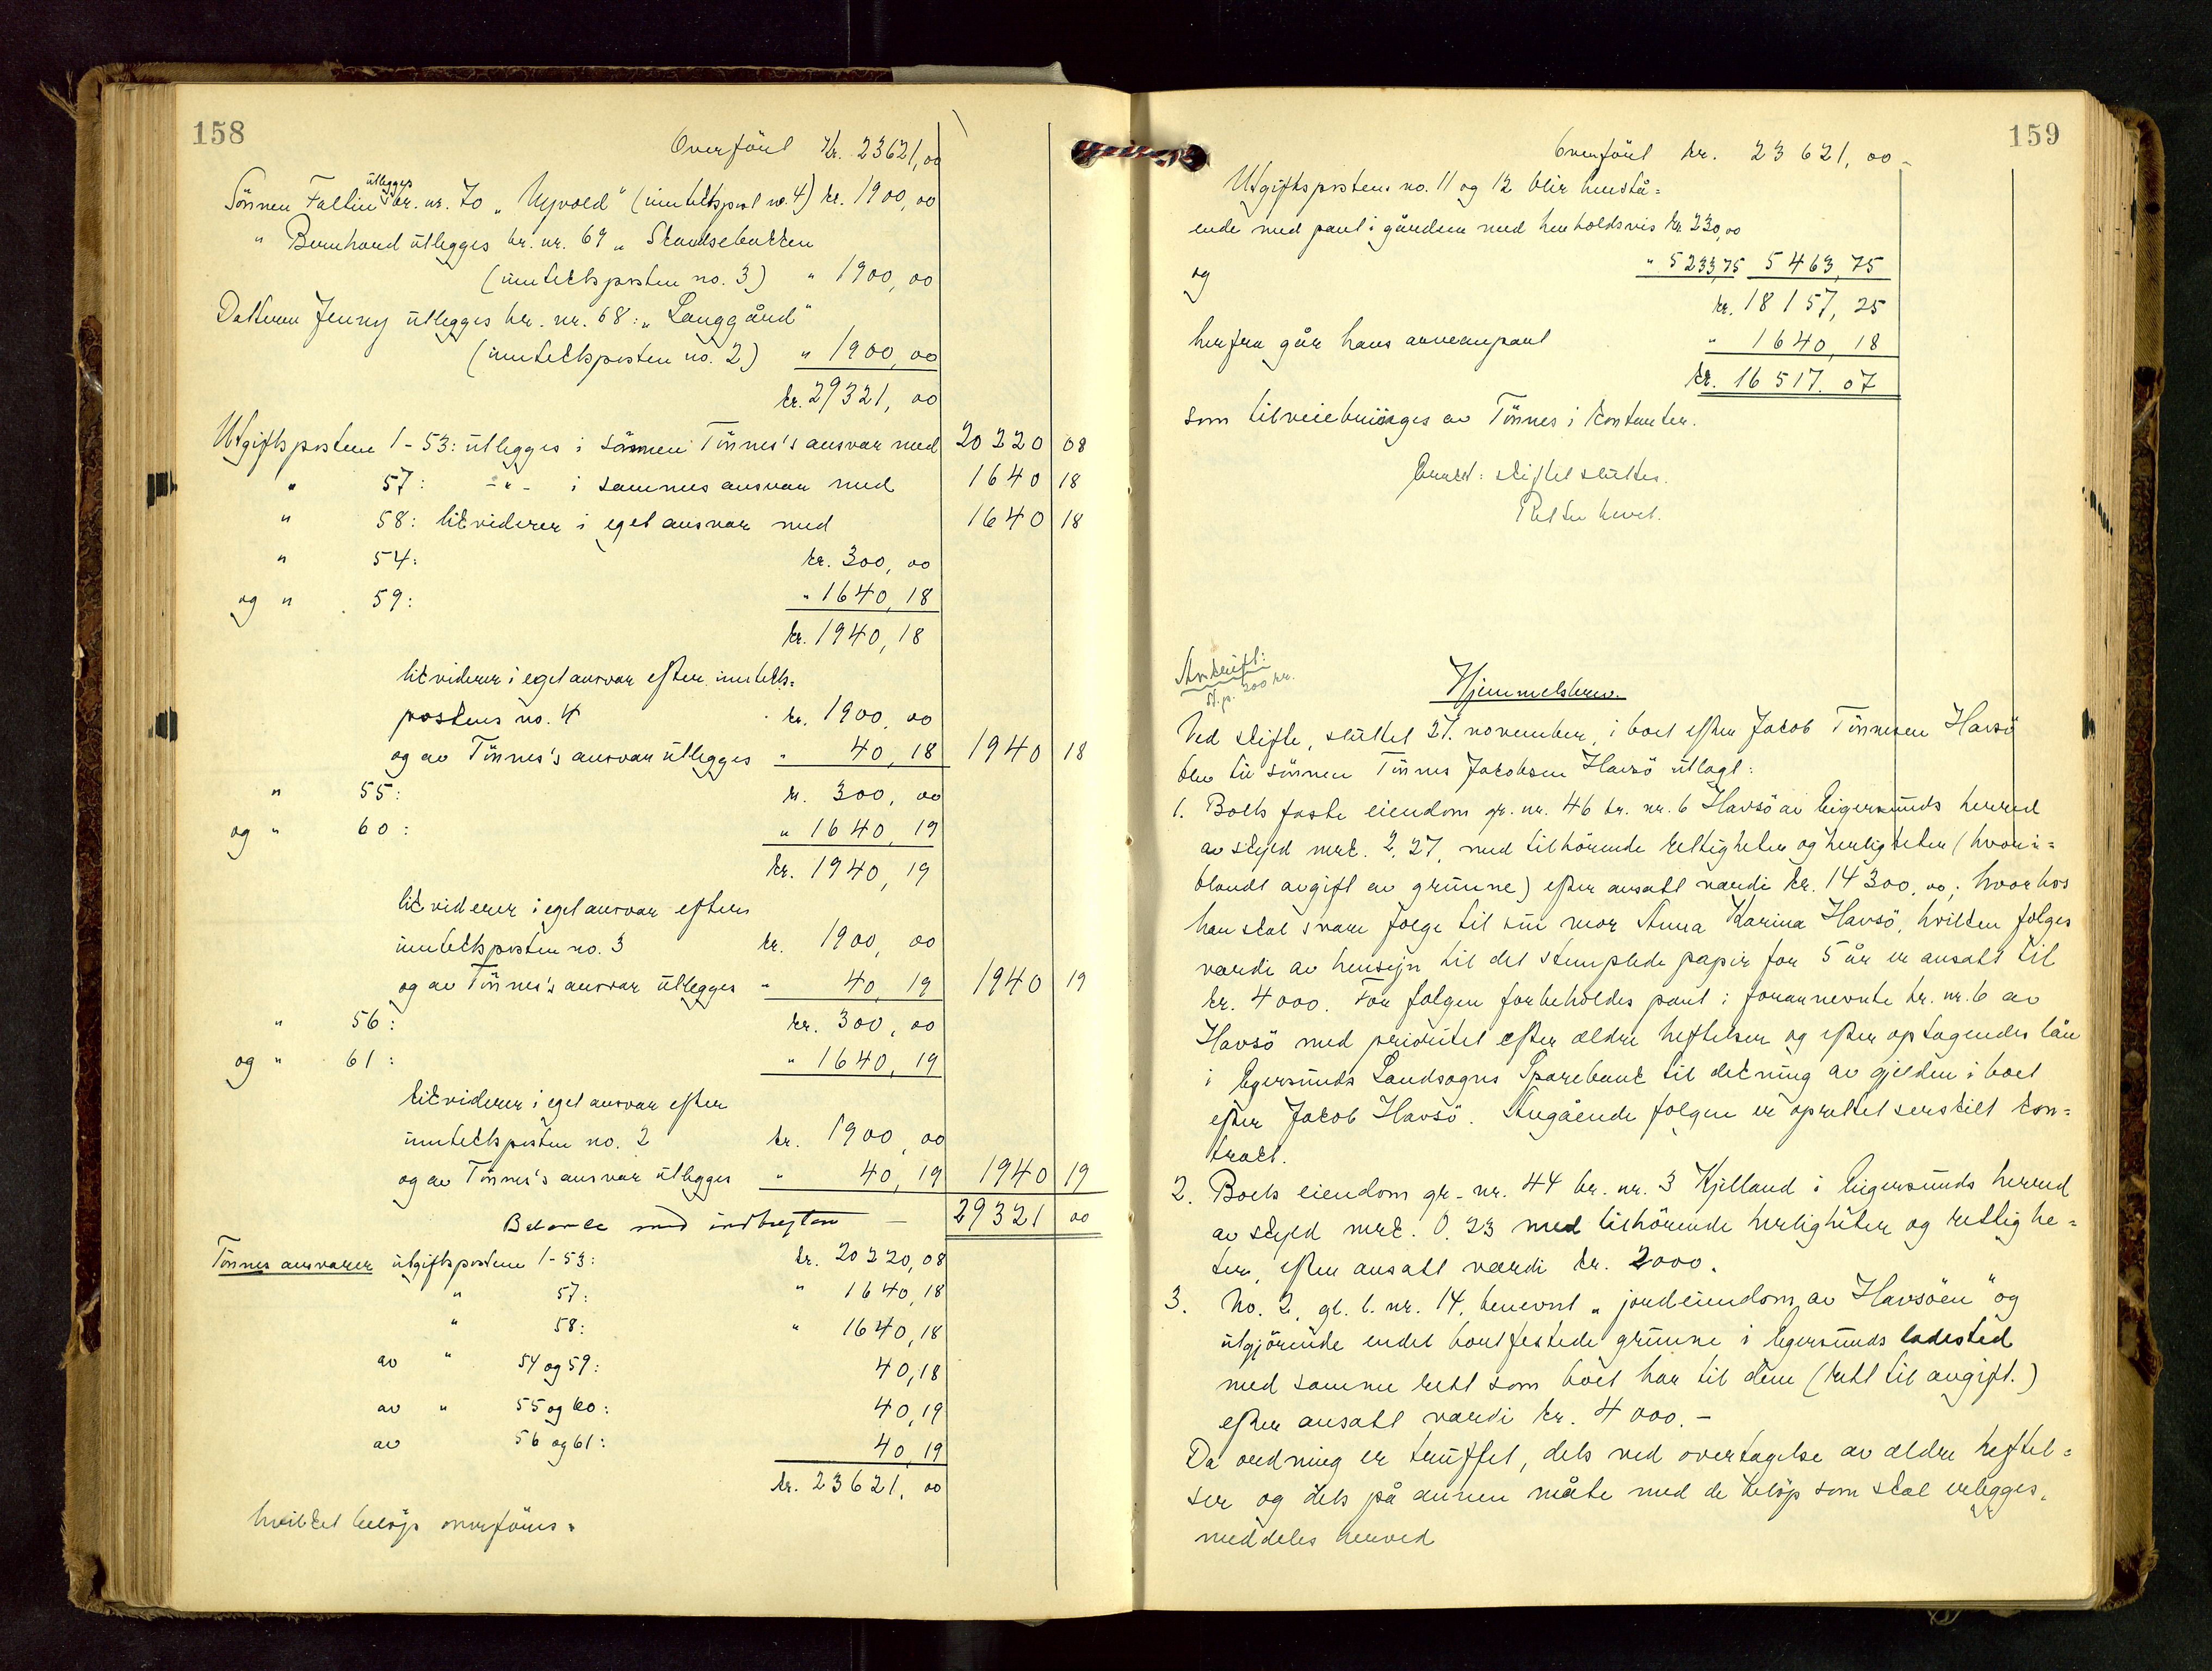 158
Overfört Kr. 23621,00
utlegges
Sönnen Faltin br. nr. 70 „Nyvold" (inntektspost no. 4) kr. 1900,00
" Bernhard utlegges br. nr. 69 „
(inntektsposten no. 3) " 1900,00
Datteren Jenny utlegges br. nr. 68: „Langgård"
(inntektsposten no. 2) " 1900,00
kr. 29321,00
Utgiftspostene 1-53: utlegges i sönnen Tönnes's ansvar med 20220 08
" 57: -"- i sammes ansvar med 1640 18
" 58: likviderer i eget ansvar med 1640 18
" 54: kr. 300,00
og " 59: " 1640,18
kr. 1940,18
likviderer i eget ansvar efter inntekts=
postens no. 4 kr. 1900,00
og av Tönnes's ansvar utlegges " 40,18 1940 18
" 55: kr. 300,00
og " 60: " 1640,19
kr. 1940,19
likviderer i eget ansvar efter
inntektsposten no. 3 kr. 1900,00
og av Tönnes's ansvar utlegges " 40,19 1940 19
" 56: kr. 300,00
og " 61: " 1640,19
likviderer i eget ansvar efter
inntektsposten no. 2 kr. 1900,00
og av Tönnes's ansvar utlegges " 40,19 1940 19
Balance med indtægten — 29321 00
Tönnes ansvarer utgiftspostene 1-53: kr. 20220,08
" 57: " 1640,18
" 58: " 1640,18
av " 54 og 59: 40,18
av " 55 og 60: 40,19
av 56 og 61: 40,19
kr. 23621,00
hvilket belöp overföres=
159
Overfört kr. 23621,00
Utgiftspostene no. 11 og 12 blir henstå=
ende med pant i gården med henholdsvis kr. 230,00
og " 5233,75 5463,75
kr. 18157,25
herfra går hans arveanpart " 1640,18
kr. 16517.07
som tilveiebringes av Tönnes i kontanter.
skiftet sluttet.
Retten hevet.
Avskrift:
St. p. 200 kr.
Hjemmelsbrev.
Ved skifte, sluttet 27. november, i boet efter Jakob Tönnesen Havsö
blev til sönnen Tönnes Jakobsen Havsö utlagt:
1. Boets faste eiendom gr. nr. 46 br. nr. 6 Havsö av Eigersunds herred
av skyld mrk. 2,27, med tilhörende rettigheter og herligheter (hvori=
blandt avgift av grunne) efter ansatt værdi kr. 14300,00; hvorhos
han skal svare folge til sin mor Anna Karina Havsö, hvilken folges
værdi av hensyn til det stemplede papir for 5 år er ansatt til
kr. 4000. For folgen forbeholdes pant i forannevnte br. nr. 6 av
Havsö med prioritet efter ældre heftelser og efter optagendes lån
i Egersunds Landsogns Sparebank til dekning av gjelden i boet
efter Jakob Havsö. Angående folgen er oprettet serskilt kon=
trakt.
2. Boets eiendom gr. nr. 44 br. nr. 3 Kjelland i Eigersunds herred
av skyld mrk. 0.23 med tilhörende herligheter og rettighe=
ter, efter ansatt værdi kr. 2000.
3. No. 2, gl. l. nr. 14, benevnt „jordeiendom av Havsöen" og
utgjörende endel bortfestede grunne i Egersunds ladested
med samme rett som boet har til dem (rett til avgift.)
efter ansatt værdi kr. 4000.-
Da ordning er truffet, dels ved overtagelse av ældre heftel=
ser og dels på annen måte med de belöp som skal erlegges,
meddeles herved